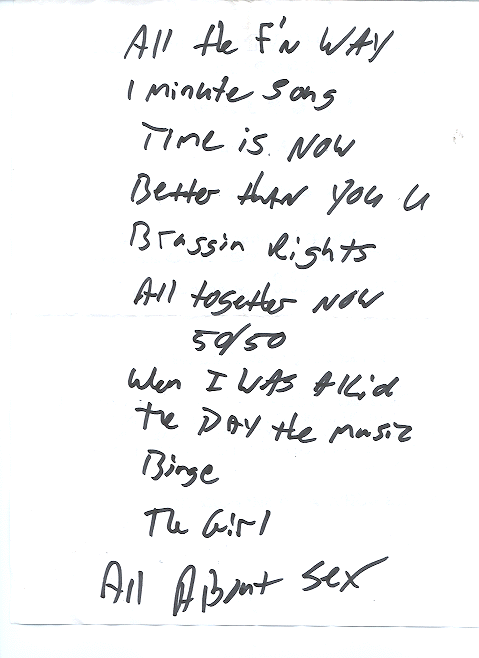 All the F'n WAY
1 minute Song
Time is NOW
Better thAN You U
Braggin Rights
All together NOW
50/50
When I WAS A Kid
the DAY the Music
Binge
The Girl
All About Sex